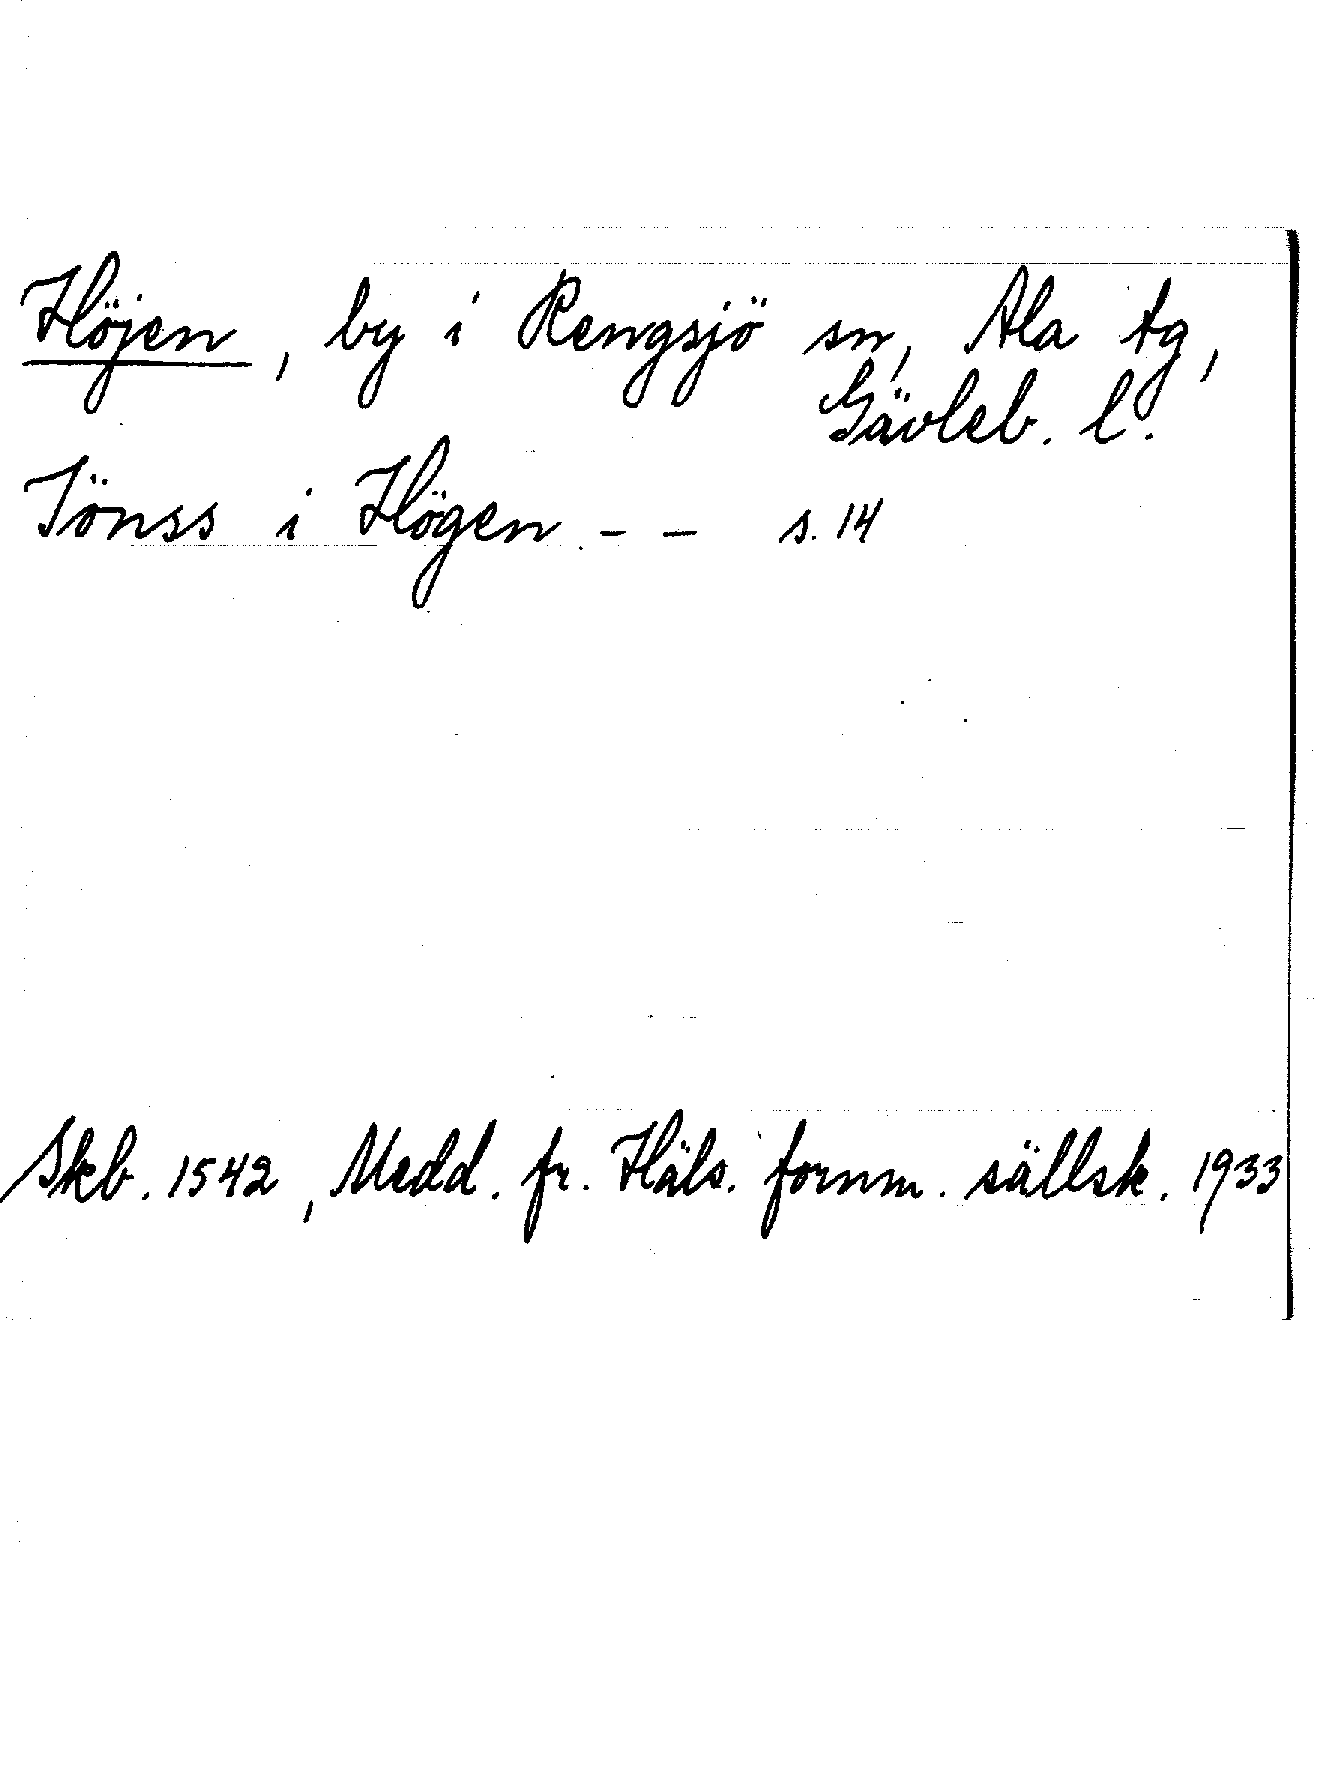 Höjen, by i Rengsjö sn, Ala tg,
Gävleb. l.
Jönss i Högen - - s. 14
Skb. 1542, Medd. fr. Häls. fornm. sällsk. 1933